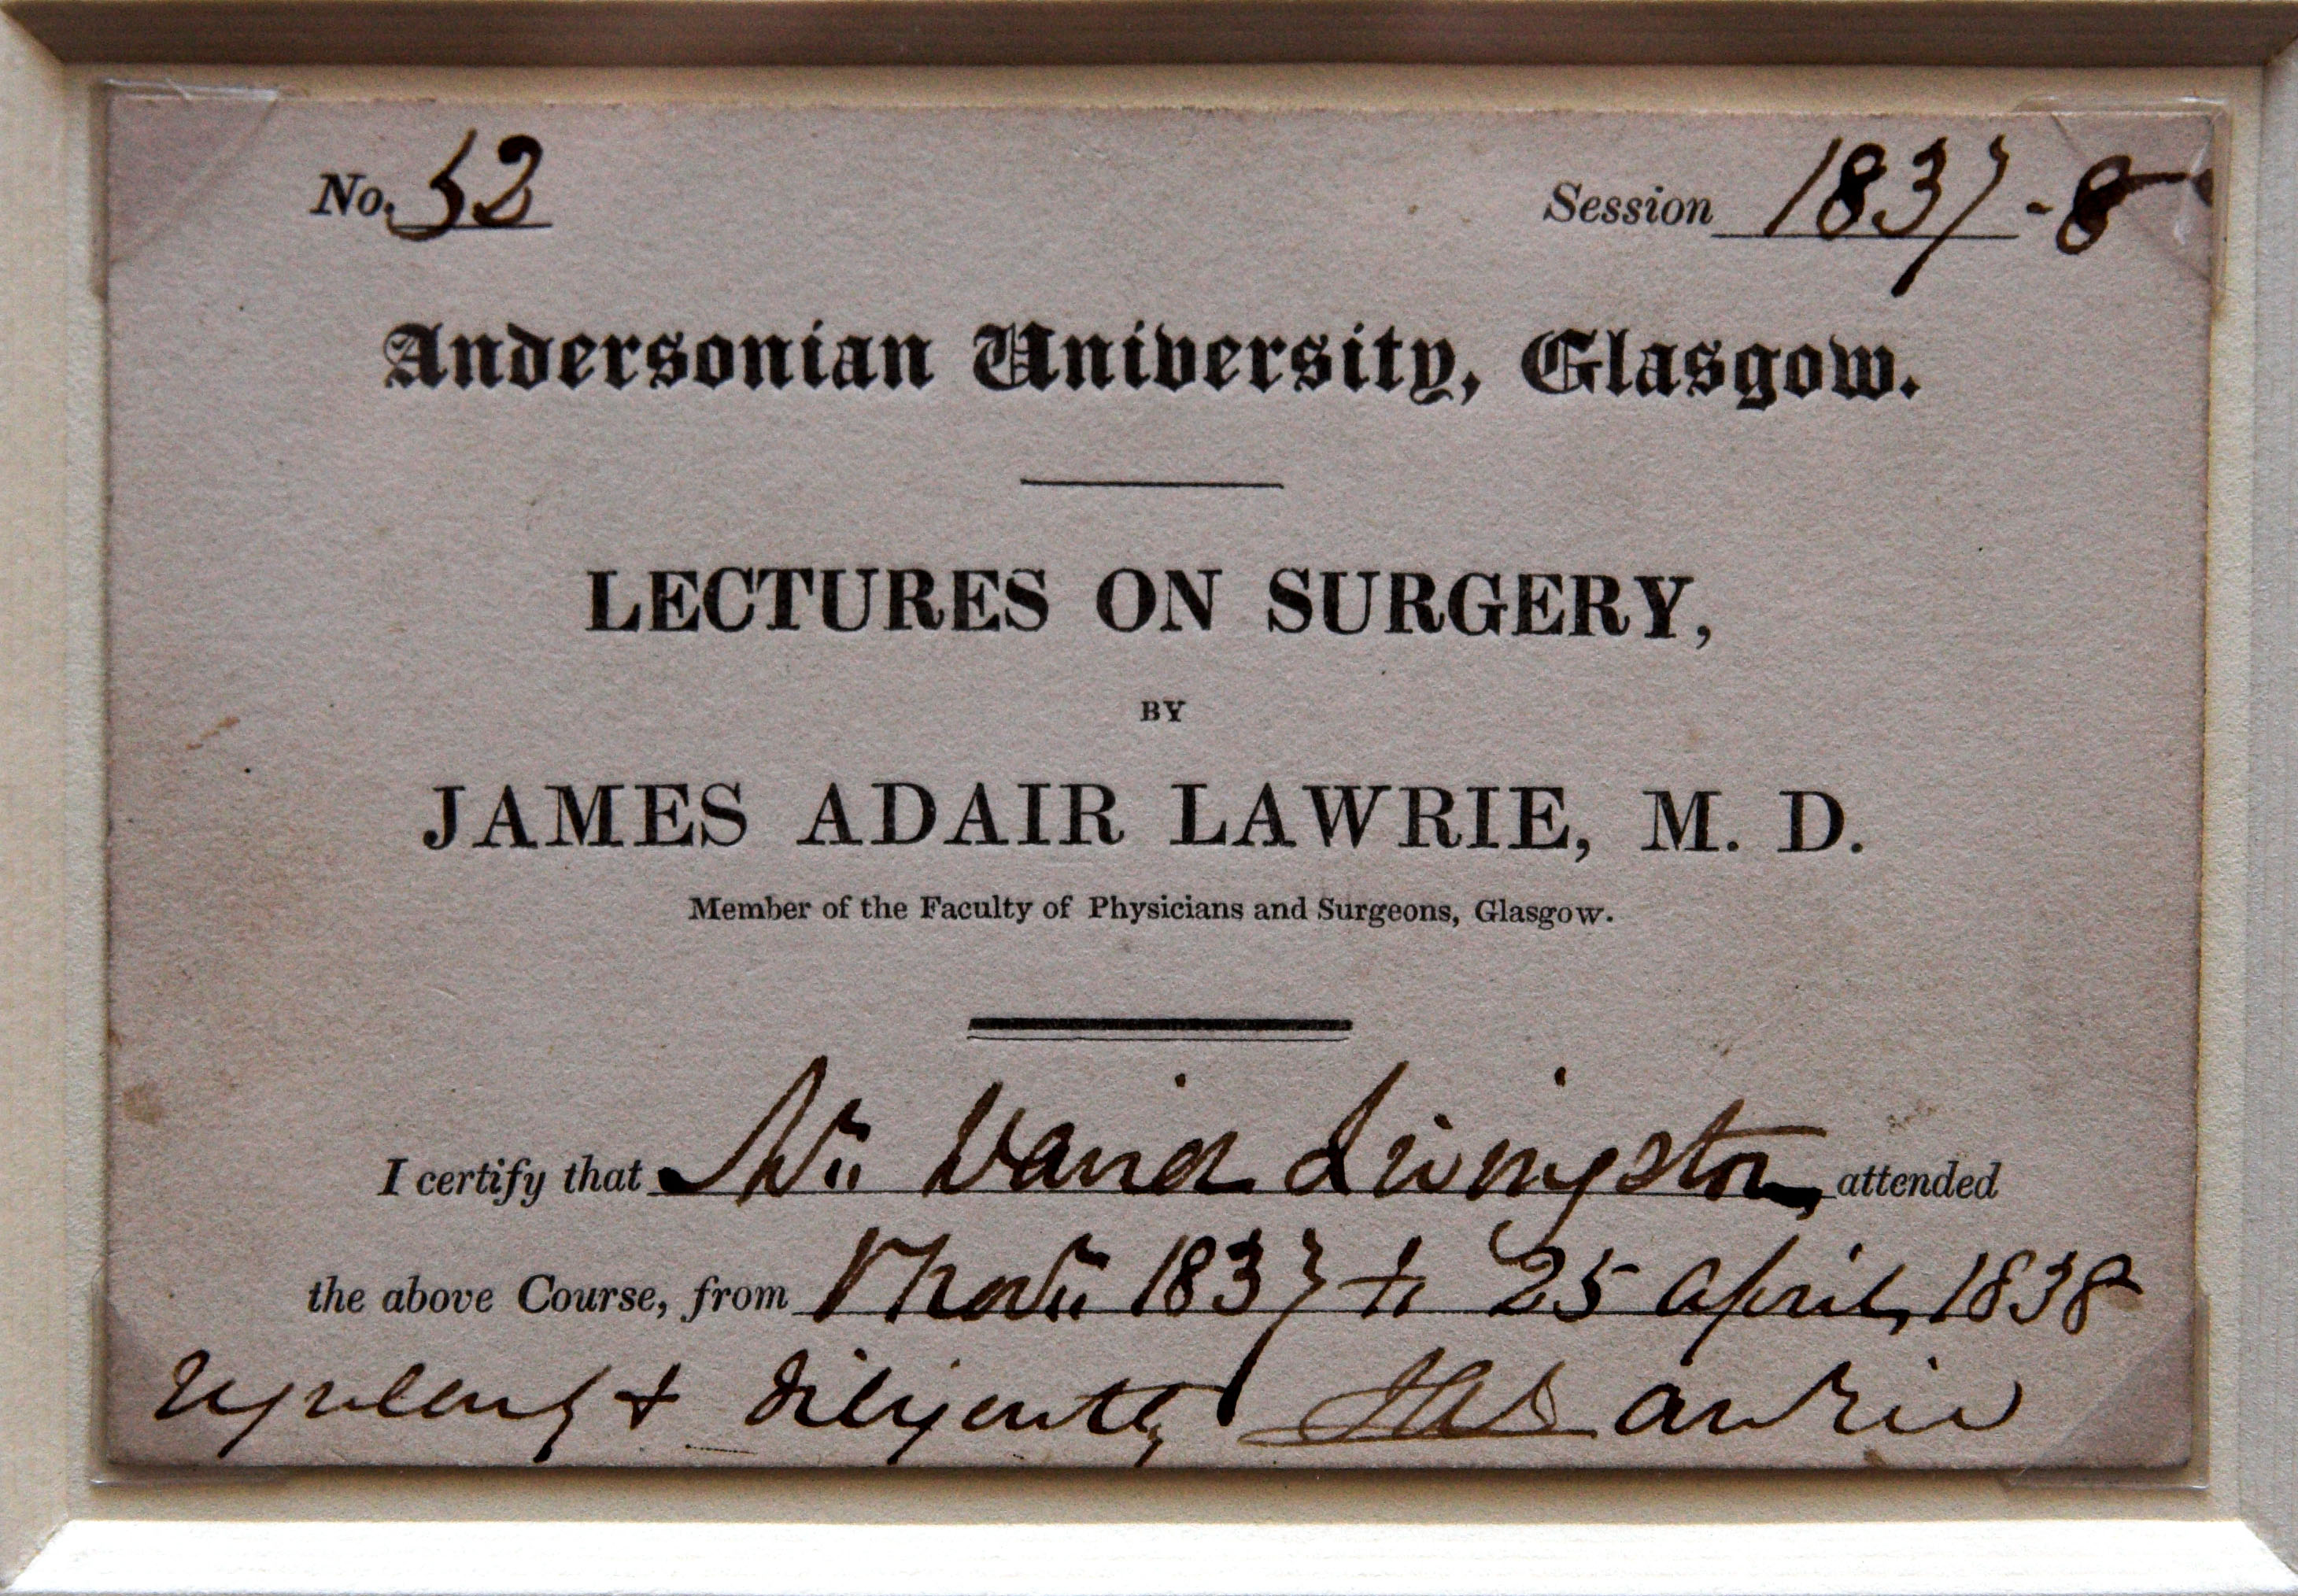 No. 52 Session 1837-8
Andersonian University, Glasgow.
LECTURES ON SURGERY,
BY
JAMES ADAIR LAWRIE, M. D.
Member of the Faculty of Physicians and Surgeons, Glasgow.
I certify that Mr David Livingston, attended
the above Course, from Novr 1837 to 25 April, 1838
regularly & diligently JA Lawrie